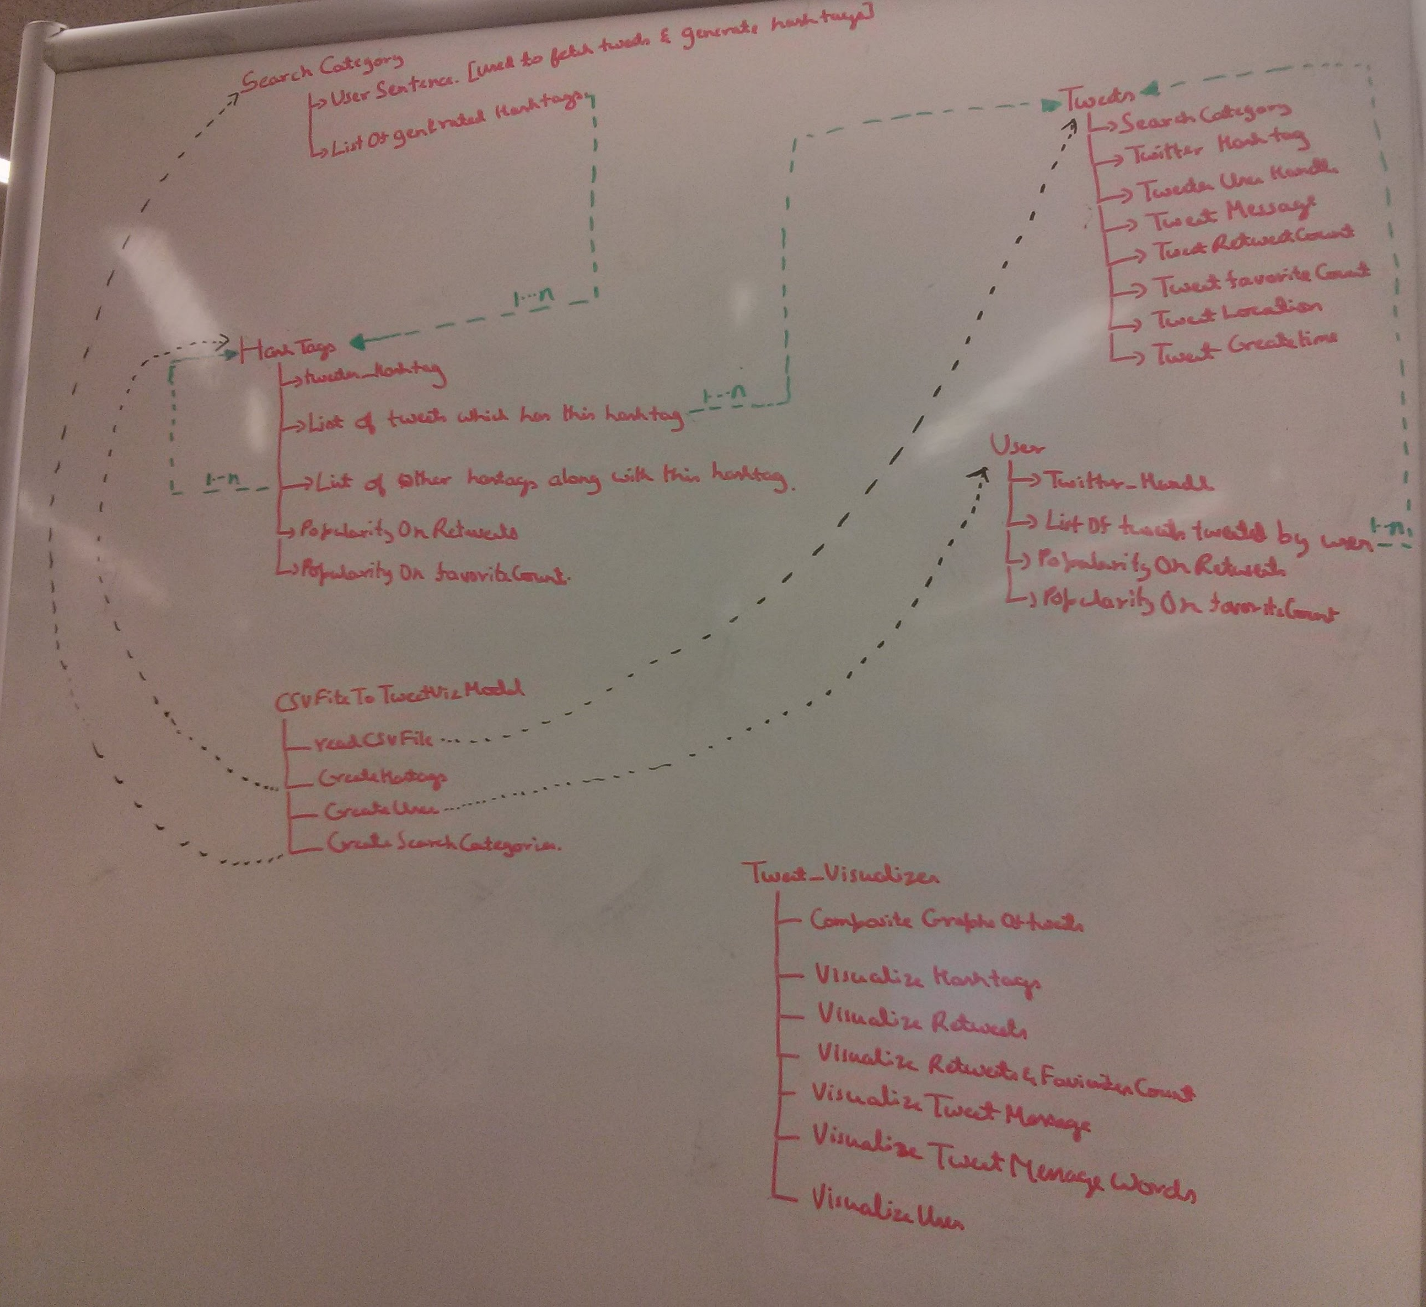 Search Category
User Sentence. [used to fetch tweets & generate hashtags]
List Of generated Hashtags
1...n
HashTags
tweeter_hashtag
List of tweets which has this hashtag
1...n
List of other hastags along with this hashtag.
1...n
Popularity On Retweets
Popularity On favoriteCount.
Tweets
Search Category
Twitter Hashtag
Tweeter User Handle
Tweet Message
Tweet RetweetCount
Tweet favorite Count
Tweet Location
Tweet Createtime
User
Twitter_Handle
List Of tweets tweeted by user
1...n
Popularity On Retweets
Popularity On favoriteCount
CSVFileToTweetVizModel
readCSVFile
CreateHastags
CreateUser
Create SearchCategories.
Tweet_Visualizer
Composite Graphs Of tweets
Visualize Hashtags
Visualize Retweets
Visualize Retweets & Count
Visualize Tweet Message
Visualize Tweet Message Words
Visualize User